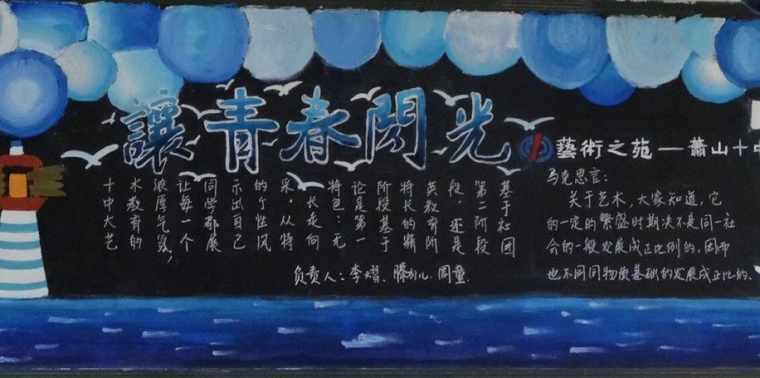 讓青春閃光
藝術之苑一蕭山十中
十中大艺
术教育的
浓厚气氛，
让每一个
同学都展
示出自己
的个性风
采，从特
长走向
特色：无
论是第一
阶段基于
特长的精
英教育阶
段，还是
第二阶段
基于社团
负责人：李
马克思言：
关于艺术，大家知道，它
的一定的繁盛时期决不是同一社
会的一般发展成正比例的，因而
也不同同物质基础的发展成正比的。